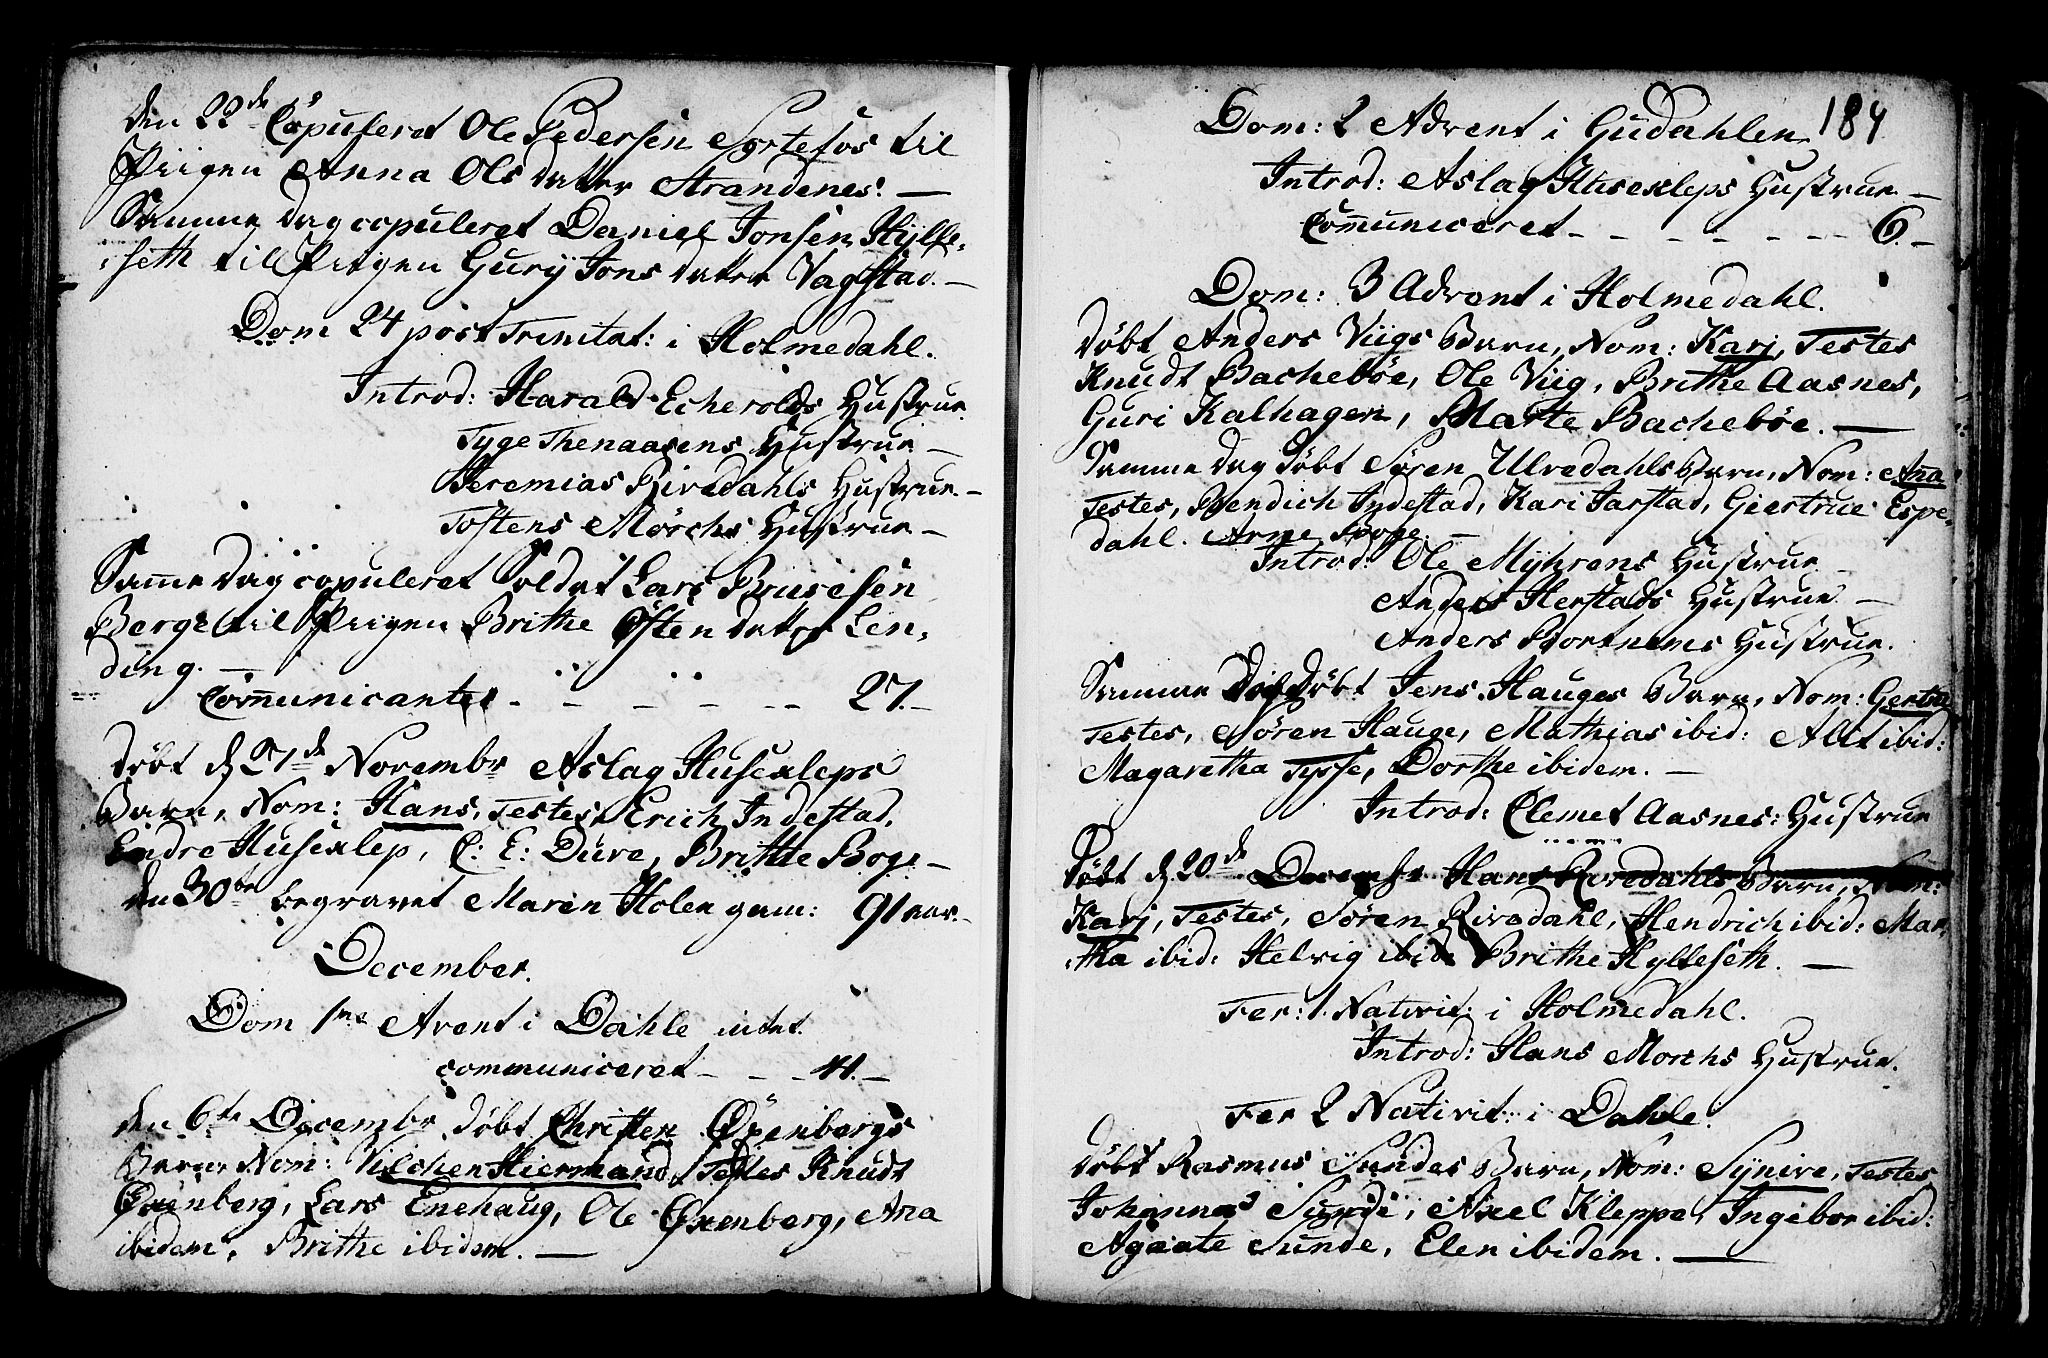 den 22de Copuleret Ole Pedersen Sortefos til
Piigen Anna Olsdatter Strandenes. —
Samme dag copuleret Daniel Jonsen Hylle-
seth til Piigen Gury Jonsdatter Vagstad. —
Dom 24 post Trinitat: i Holmedahl.
Introd: Harald Echerolds Hustrue
Tyge Thenaasens Hustrue —
Jeremias Rivedahls Hustrue. —
Tostens Mörchs Hustrue —
Same Dag copuleret Soldat Lars
Berge til Piigen Brithe Östendatter Len-
ding. —
Communicantes - - - - - - 27. —
Döbt d 27de Novembr Aslag Husexleps
Barn, Nom: Hans, Testes, Erich Indestad,
Endre Husexlep, C: E: Düre, Brithe Boge —
den 30te begravet Maren Holen gam: 91 aar. —
December.
Dom 1me Avent i Dahle intet
communiceret - - - 11. —
den 6te Decembr döbt Christen Öxenbergs
Barn, Nom: Vilchen Hiermand, Testes Knudt
Öxenberg, Lars Enehaug, Ole Öxenberg, Ana
ibidem, Brithe ibidem. —
184
Dom: 2 Advent i Gudahlen
Introd: Aslag Husexleps Hustrue —
Communiceret - - - - - - - 6. —
Dom: 3 Advent i Holmedahl.
Döbt Anders Viigs Barn, Nom: Karj, Testes
Knudt Bacheböe, Ole Viig, Brithe Aasnes,
Guri Kalhagen, Marte Bacheböe. —
Samme dag döbt Sören Ulvedahls Barn, Nom: Ana
Testes, Bendich Indestad, Kari Jarstad, Giertrue Espe-
dahl. Arne —
Introd: Ole Myhrens Hustrue —
Anders Herstads Hustrue. —
Anders Hortnems Hustrue.
Samme Dag döbt Jens Hauges Barn, Nom:
Testes, Sören Hauge, Mathias ibid: Alit ibid:
Magaretha Tysse, Dorthe ibidem. —
Introd: Clemet Aasnes: Hustrue
Döbt d 20de Decembr Hans Rivedahls Barn, Nom:
Karj, Testes, Sören Rivedahl, Hendrich ibid: Mar-
tha ibid: Helvig ibid: Brithe Hylleseth. —
Fer: 1. Nativit: i Holmedahl.
Introd: Hans Morchs Hustrue.
Fer 2 Nativit: i Dahle.
Döbt Rasmus Sundes Barn, Nom: Synive, Testes
Johannes Sunde, Axel Kleppe, Ingebor ibid:
Agaate Sunde, Elen ibidem. —